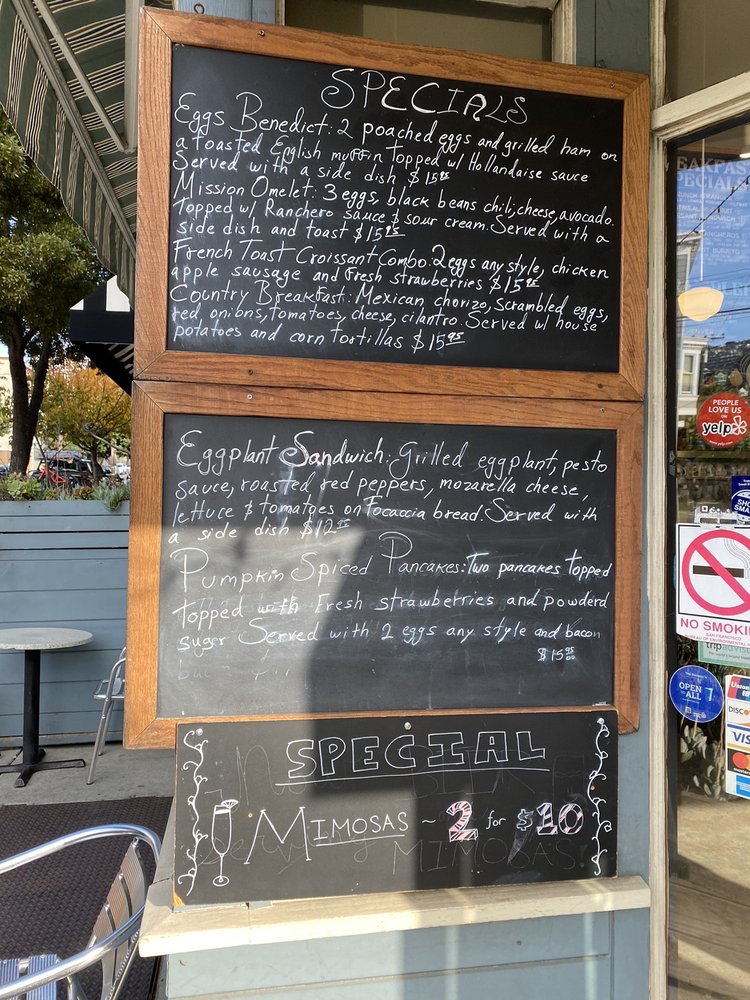 SPECIALS
Eggs Benedict: 2 poached eggs and grilled ham on
a toasted English muffin topped w/ Hollandaise sauce
Served with a side dish $15.95
Mission Omelet: 3 eggs, black beans chili, cheese, avocado.
Topped w/ Ranchero sauce & sour cream. Served with a
side dish and toast $15.95
French Toast Croissant Combo: 2 eggs any style, chicken
apple sausage and fresh strawberries $15.95
Country Breakfast: Mexican chorizo, scrambled eggs,
red, onions, tomatoes, cheese, cilantro. Served w/ house
potatoes and corn tortillas $15.95
Eggplant Sandwich: Grilled eggplant, pesto
sauce, roasted red peppers, mozarella cheese,
lettuce & tomatoes on Focaccia bread. Served with
a side dish $12
Pumpkin Spiced Pancakes: Two pancakes topped
topped with Fresh strawberries and powderd
suger Served with 2 eggs any style and bacon
$15.95
SPECIAL
MIMOSAS ~ 2 for $10
PEOPLE
LOVE US
ON
yelp
NO SMOKIN
SAN FRANCISCO
tripadvis
OPEN
TO
ALL
DISC
VISA